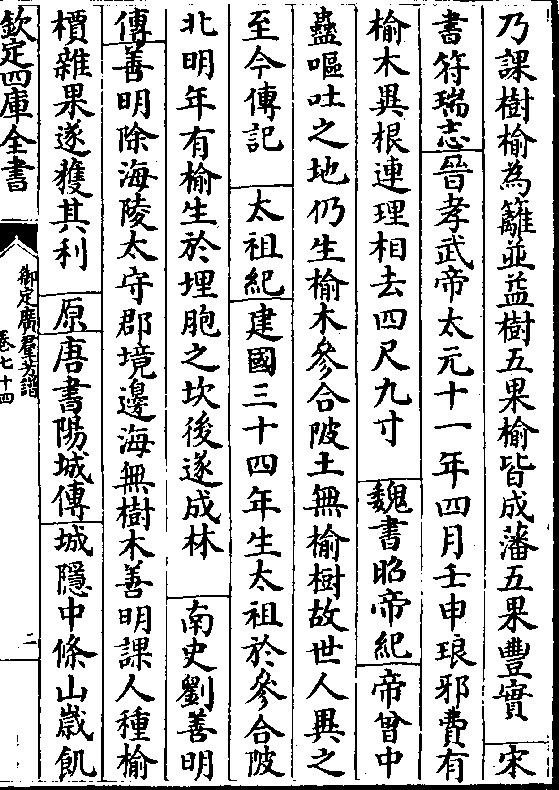 乃課樹榆為籬並益樹五果榆皆成藩五果豐實　宋
書符瑞志晉孝武帝太元十一年四月壬申琅邪費有
榆木異根連理相去四尺九寸　魏書昭帝紀帝曾中
蠱嘔吐之地仍生榆木參合陂土無榆樹故世人異之
至今傳記　太祖紀建國三十四年生太祖於參合陂
北明年有榆生於埋胞之坎後遂成林　南史劉善明
傳善明除海陵太守郡境邊海無樹木善明課人種榆
檟雜果遂獲其利　原唐書陽城傳城隱中條山歲飢
欽定四庫全書
御定廣羣芳譜
卷七十四
二